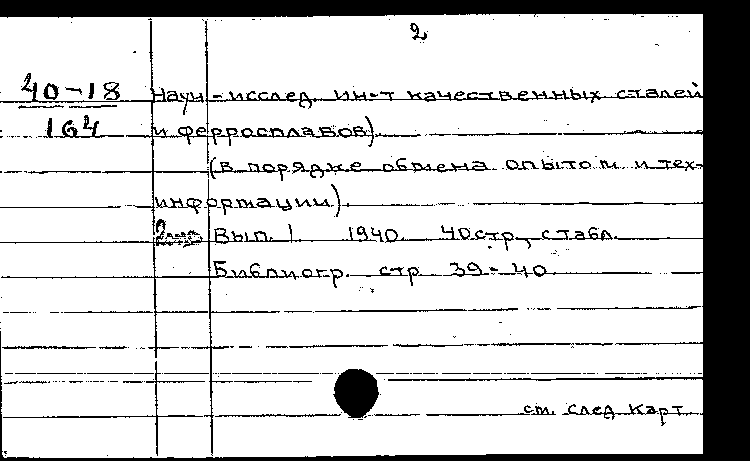 2
40-18 Науч-исслед. ин-т качественных сталей
164 и ферросплавов).
(в порядке обмена опытом и тех-
информации).
Вып. 1 1940. 40стр., с табл.
Библиогр. стр 39-40.
см. след карт.